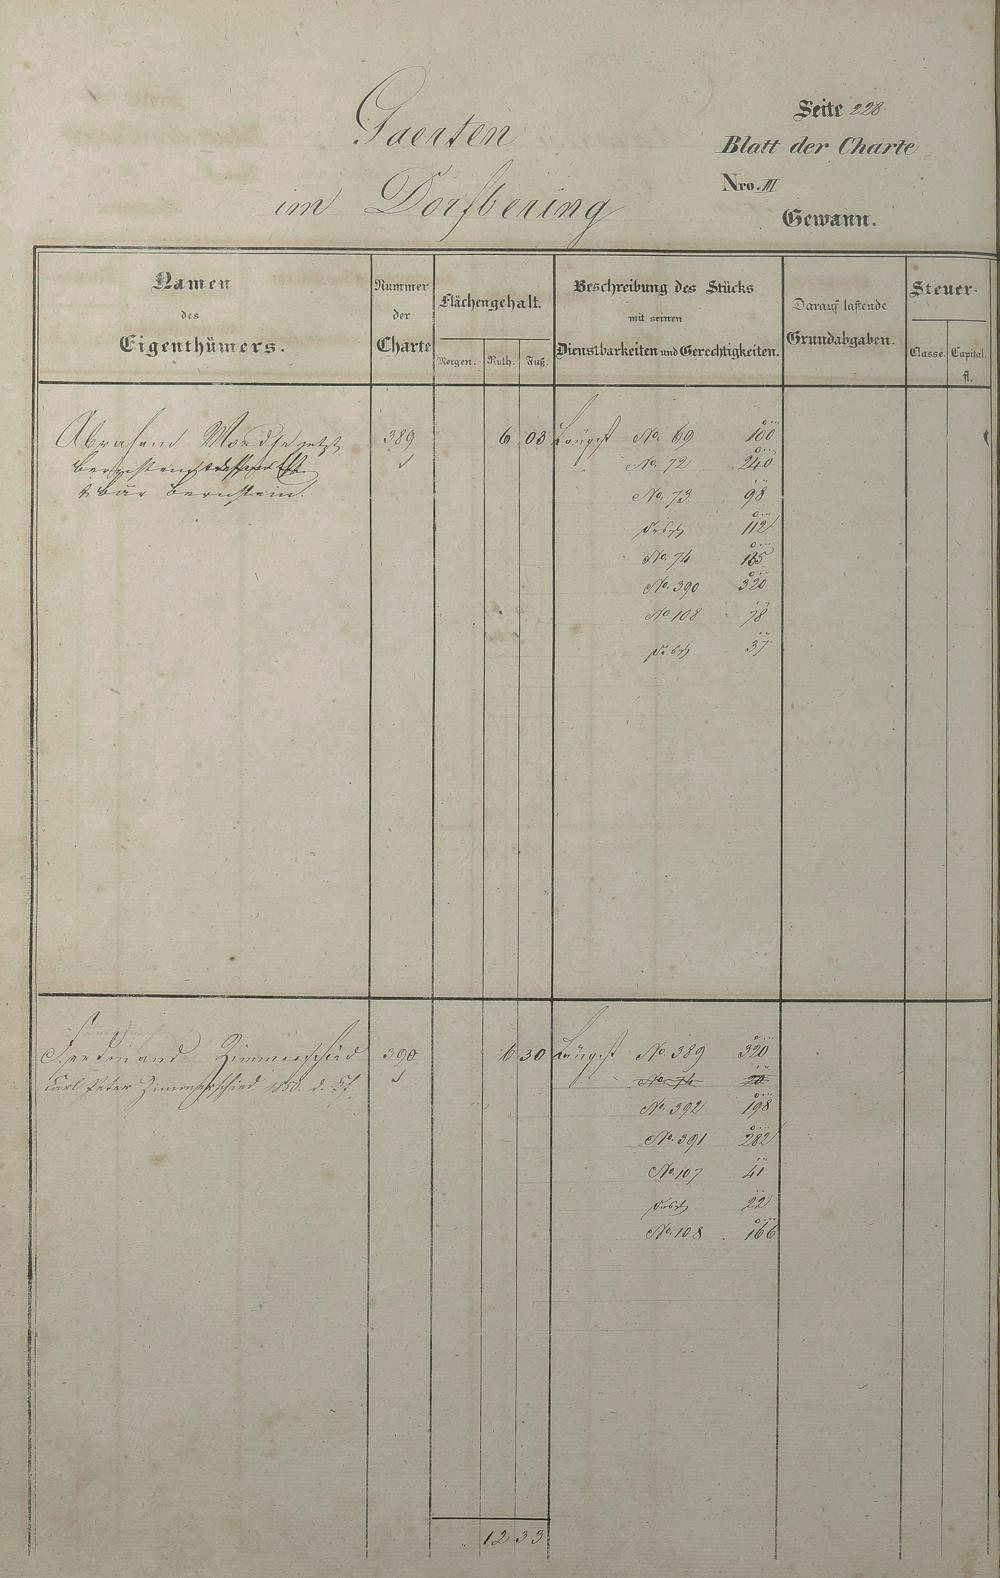 Gaerten
im Dorfbering
Seite 228
Blatt der Charte
Nro. III
Gewann.
Namen
des
Eigenthümers.
Nummer
der
Charte
Flächengehalt.
Morgen. Ruth. Fuß.
Beschreibung des Stücks
mit seinen
Dienstbarkeiten und Gerechtigkeiten.
Darauf lastende
Grundabgaben.
Steuer-
Classe. Capital.
fl.
Abraham jetzt 389 6 03 Längst No. 69 100
No. 72 240
Bär Bernstein. No. 73 98
112
No. 74
No. 390 320
No 108 78
37
Ferdinand Zimmerschied 390 6 30 Längst No. 389 320
Carl Peter Zimmerschied No. 74 20
No. 392 198
No. 391 282
No 107 41
22
No. 108 166
12 33